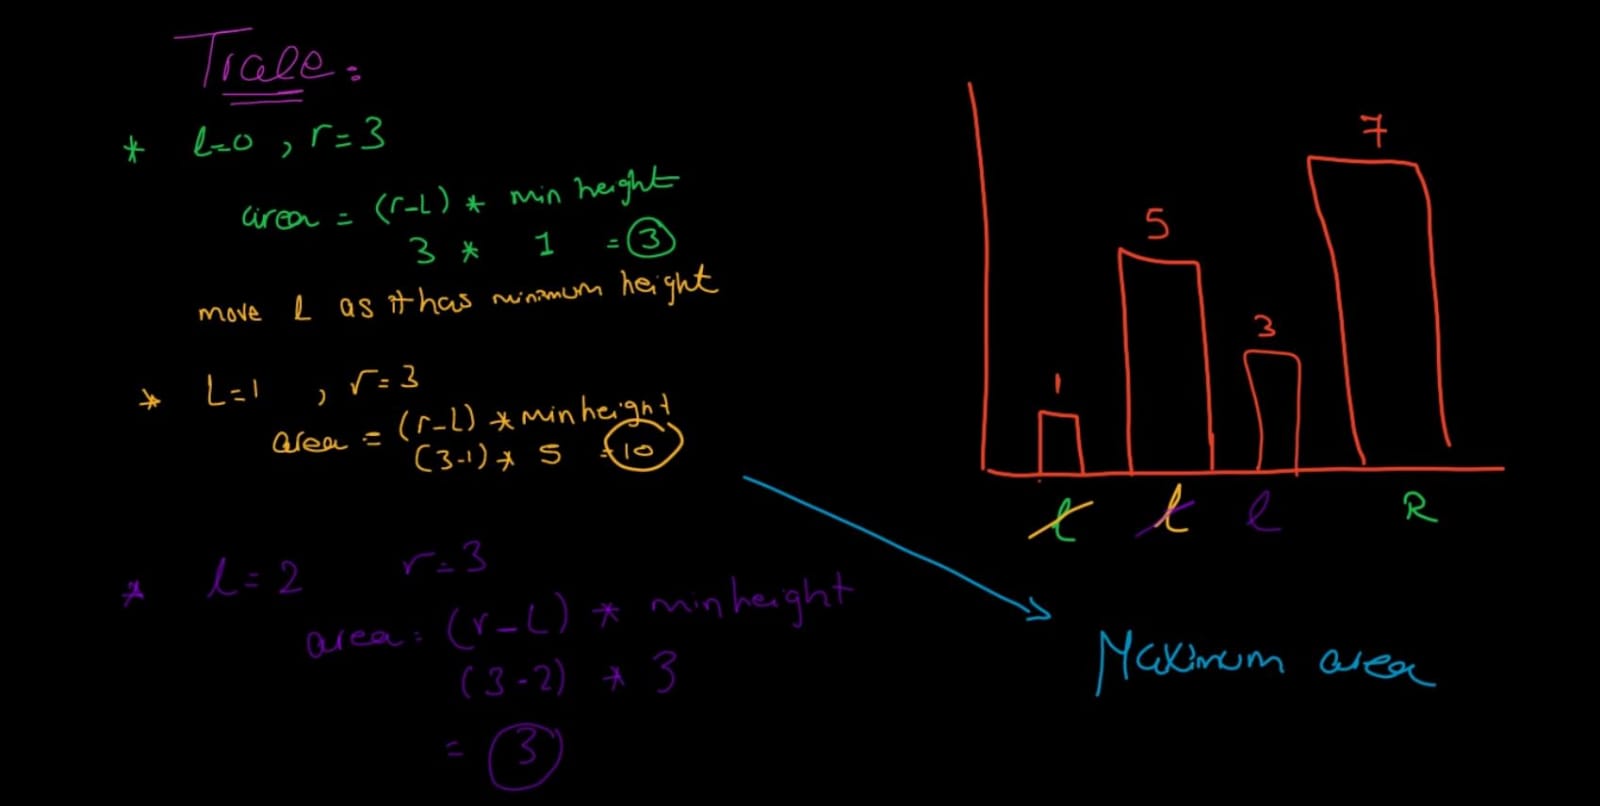 Trace:
* l=0 , r=3
area = (r-L) * min height
3 * 1 = 3
move l as it has minimum height
* L=1 , r=3
area = (r-L) * min height
(3-1) * 5 = 10
* l=2 r=3
area: (r-L) * min height
(3-2) * 3
= 3
7
5
3
1
l l l R
Maximum area